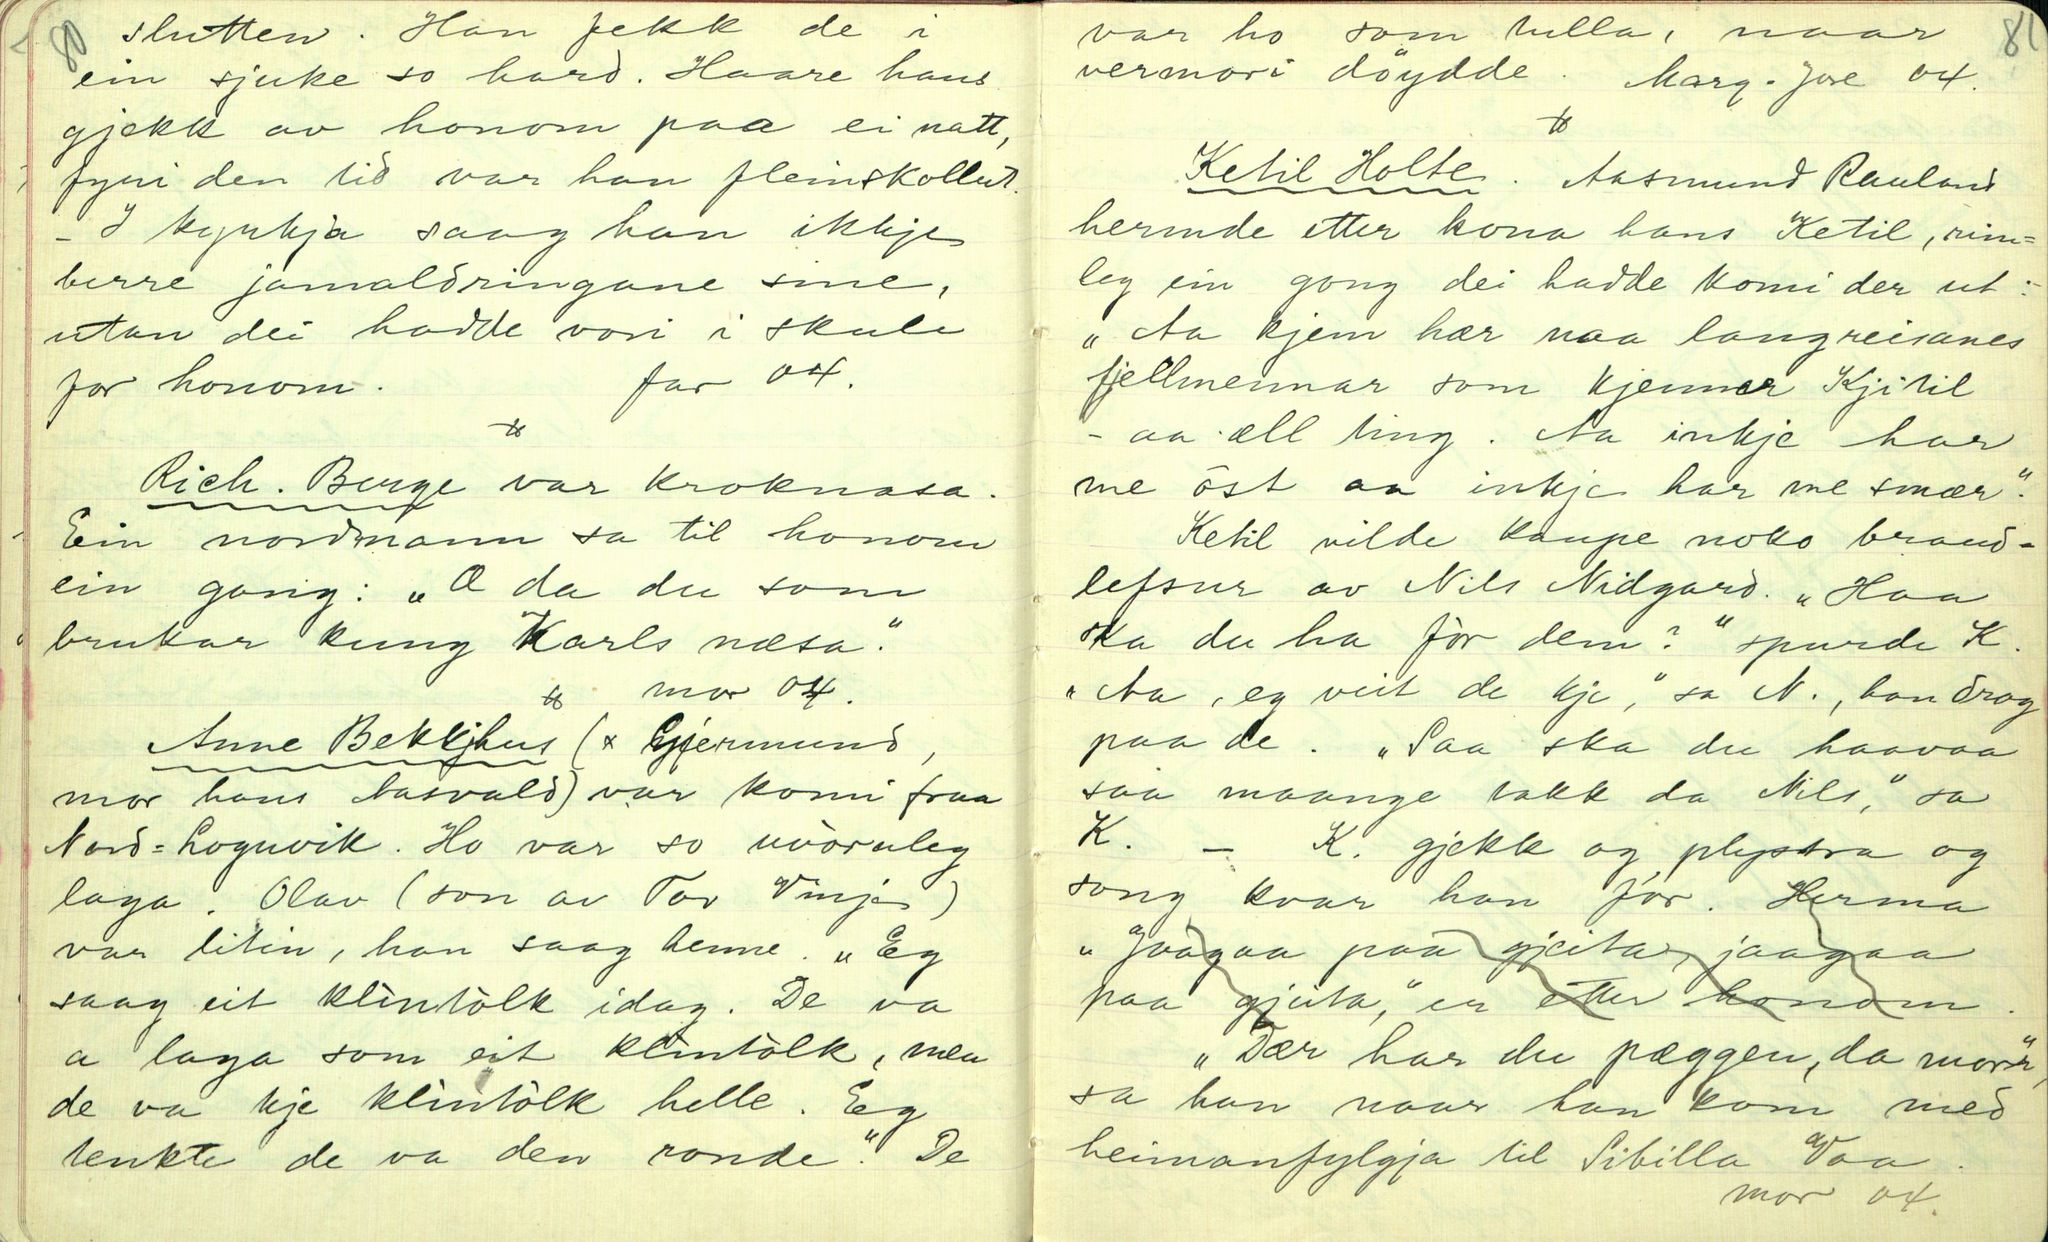 80
slutten. Han fekk de i
ein sjuke so hard. Haare hans
gjekk av honom paa ei natt,
fyri den tid var han fleinskollut.
- I kyrkja saag han ikkje
berre jamaldringane sine,
utan dei hadde vori i skule
for honom. far 04.
Rich. Berge var kroknasa.
Ein nordmann sa til honom
ein gong: „Æ da du som
brukar kung Karls næsa."
mor 04.
Anne Bekkjhus (x Gjermund,
mor hans Aasvald) var komi fraa
Nord-Loguvik. Ho var so uvòruleg
laga. Olav (son av Tor Vinje)
var litin, han saag henne. „Eg
saag eit klintòlk idag. De va
a laga som eit klintòlk, men
de va kje klintòlk helle. Eg
tenkte de va den vonde." De
81
var ho som tulla, naar
vermori döydde. Marg. Jore 04.
Ketil Holte. Aasmund Rauland
hermde etter kona hans Ketil, rim=
leg ein gong dei hadde komi der ut:
„Aa kjem hær naa langreisanes
fjellmennar som kjenner Kjitil
- aa æll ting. Aa inkje har
me öst aa inkje har me smær".
Ketil vilde kaupe noko braud-
lefsur av Nils Nidgard. „Haa
ska du ha för dem?" spurde K.
„Aa, eg veit de kje," sa N., han drog
paa de. „Saa ska du haavaa
saa maange takk da Nils," sa
K. - K. gjekk og plystra og
song kvar han fór. Herma
„Jaagaa paa gjeita, jaagaa
paa gjeita," er etter honom.
„Dær har du pæggen, da mor",
sa han naar han kom med
heimanfylgja til Sibilla Vaa.
mor 04.